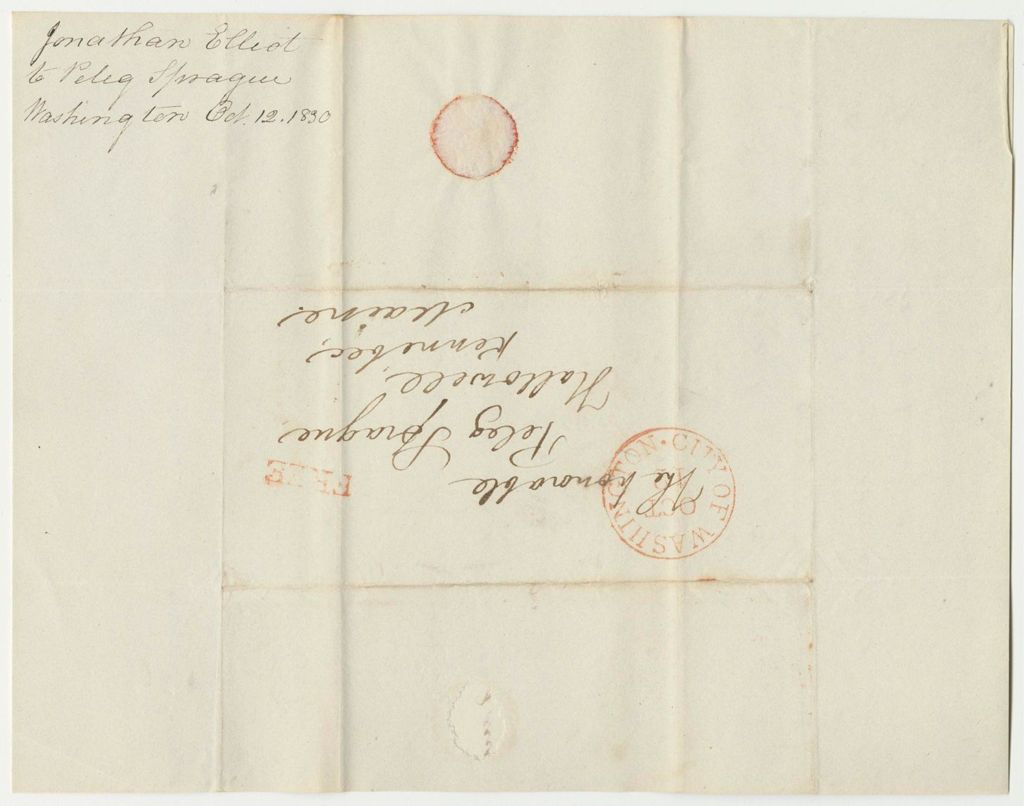 Jonathan Elliot
to Peleg Sprague
Washington Oct. 12. 1830
The honorable
Peleg Sprague
Hallowell,
Kennebec,
Maine.
FREE
CITY OF WASHINGTON
OCT